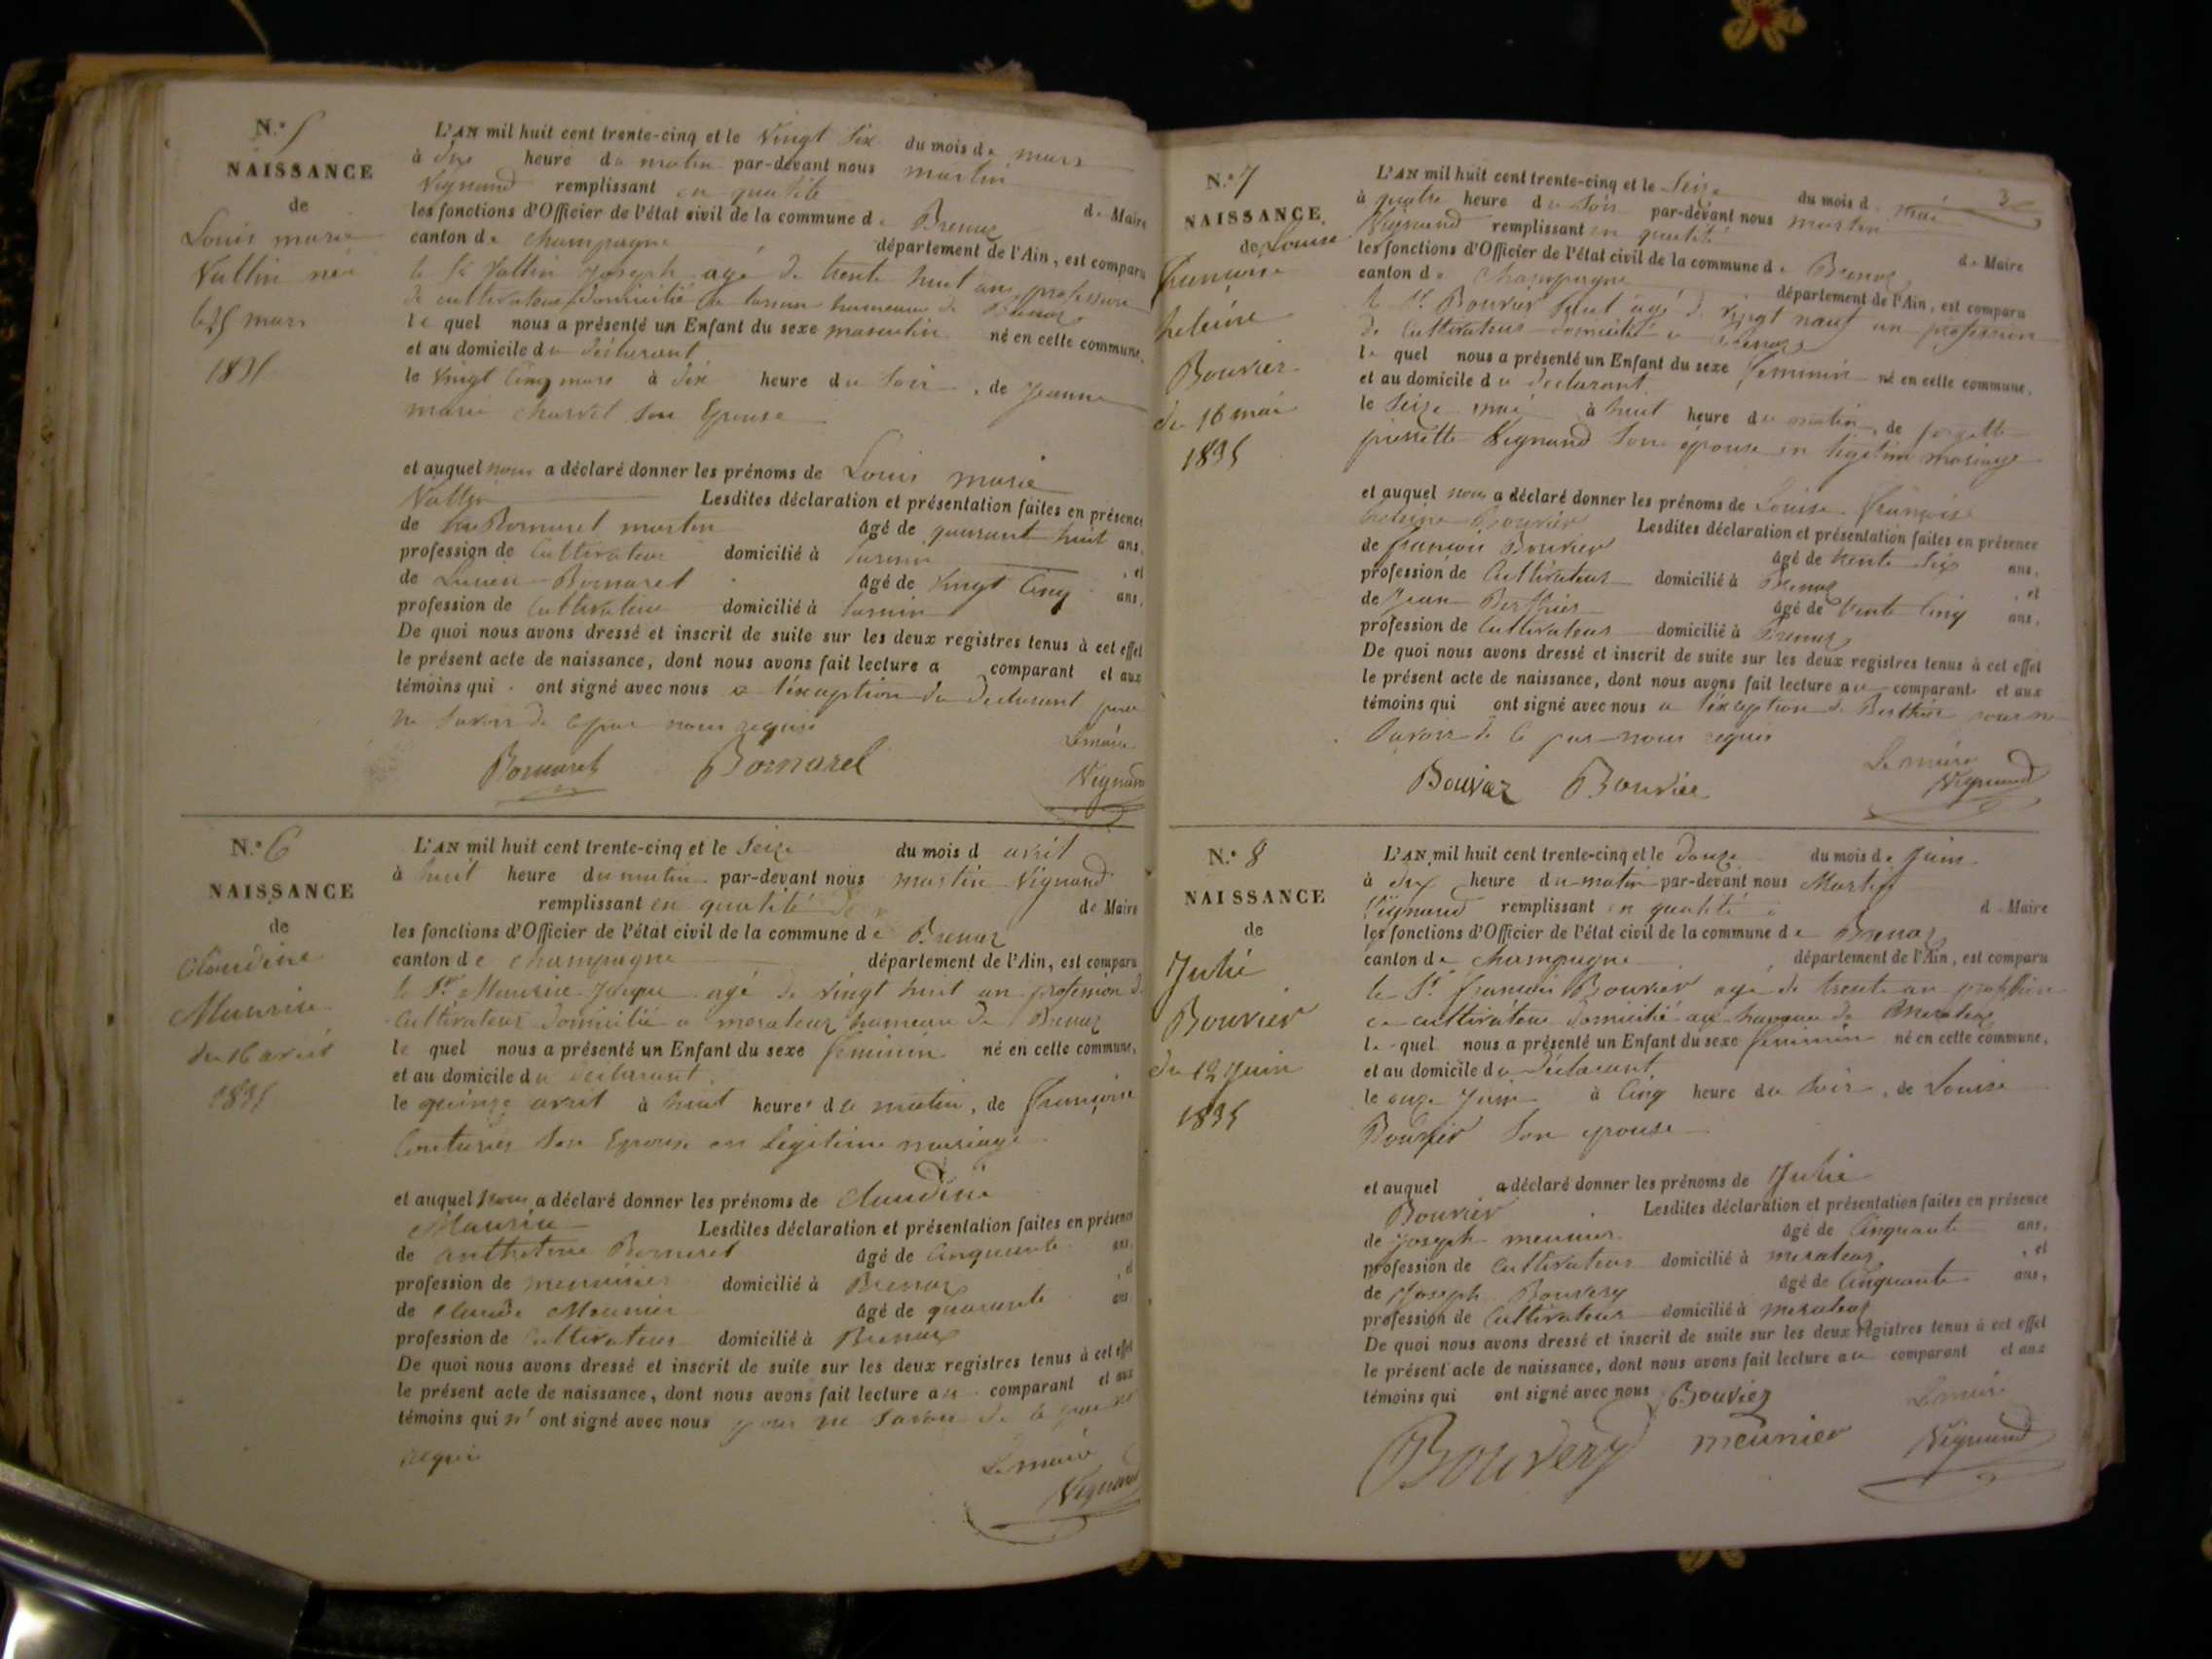 N.º 5
NAISSANCE
de
Louis marie
Vallin née
le 25 mars
1835
L'AN mil huit cent trente-cinq et le Vingt Six du mois de mars
à dix heure du matin par-devant nous martin
Vignand remplissant en qualité de Maire
les fonctions d'Officier de l'état civil de la commune de Brenaz
canton de Champagne département de l'Ain, est comparu
le Sr Vallin Joseph agé de trente huit ans profession
de cultivateur domicilié a hameau de Brenaz
le quel nous a présenté un Enfant du sexe masculin né en cette commune,
et au domicile du déclarant
le Vingt Cinq mars à dix heure du Soir, de Jeanne
marie Charvet Son Epouse
et auquel nous a déclaré donner les prénoms de Louis marie
Vallin Lesdites déclaration et présentation faites en présence
de Bornarel martin âgé de quarante huit ans,
profession de Cultivateur domicilié à , et
de Bornarel âgé de Vingt Cinq ans,
profession de Cultivateur domicilié à
De quoi nous avons dressé et inscrit de suite sur les deux registres tenus à cet effet
le présent acte de naissance, dont nous avons fait lecture a comparant et aux
témoins qui ont signé avec nous a l'éxception du declarant pour
ne Savoir de ce par nous requis
Le maire
Bornarel Bornarel Vignand
N.º 6
NAISSANCE
de
Claudine
Maurice
du 16 avril
1835
L'AN mil huit cent trente-cinq et le Seize du mois d avril
à huit heure du matin par-devant nous martin Vignand
remplissant en qualité de Maire
les fonctions d'Officier de l'état civil de la commune de Brenaz
canton de Champagne département de l'Ain, est comparu
le Sr Maurice agé de vingt huit an profession de
Cultivateur domicilié a meraleaz hameau de Brenaz
le quel nous a présenté un Enfant du sexe feminin né en cette commune,
et au domicile du declarant
le quinze avril à huit heure du matin, de Françoise
Couturier Son Epouse en Légitime mariage
et auquel nous a déclaré donner les prénoms de Claudine
Maurice Lesdites déclaration et présentation faites en présence
de anthelme Bornarel âgé de Cinquante ans,
profession de domicilié à Brenaz , et
de Claude Meunier âgé de quarante ans
profession de Cultivateur domicilié à Brenaz
De quoi nous avons dressé et inscrit de suite sur les deux registres tenus à cet effet
le présent acte de naissance, dont nous avons fait lecture au comparant et aux
témoins qui n'ont signé avec nous pour ne Savoir de ce par nous
requis
Le maire
Vignand
3
N.º 7
NAISSANCE
de Louise
françoise
heleine
Bouvier
du 16 mai
1835
L'AN mil huit cent trente-cinq et le Seize du mois d mai
à quatre heure du Soir par-devant nous martin
Vignand remplissant en qualité de Maire
les fonctions d'Officier de l'état civil de la commune de Brenaz
canton de Champagne département de l'Ain, est comparu
le Sr Bouvier agé de vingt neuf an profession
de Cultivateur domicilié a Brenaz
le quel nous a présenté un Enfant du sexe feminin né en cette commune,
et au domicile du declarant
le Seize mai à huit heure du matin, de
pierrette Vignand Son épouse en légitime mariage
et auquel nous a déclaré donner les prénoms de Louise françoise
heleine Bouvier Lesdites déclaration et présentation faites en présence
de françois Bouvier âgé de trente Six ans,
profession de Cultivateur domicilié à Brenaz , et
de Jean Berthier âgé de trente Cinq ans,
profession de Cultivateur domicilié à Brenaz
De quoi nous avons dressé et inscrit de suite sur les deux registres tenus à cet effet
le présent acte de naissance, dont nous avons fait lecture au comparant et aux
témoins qui ont signé avec nous a l'éxception de Berthier pour ne
Savoir de ce par nous requis
Le maire
Bouvier Bouvier Vignand
N.º 8
NAISSANCE
de
Julie
Bouvier
du 12 Juin
1835
L'AN mil huit cent trente-cinq et le douze du mois de Juin
à dix heure du matin par-devant nous Martin
Vignand remplissant en qualité d Maire
les fonctions d'Officier de l'état civil de la commune de Brenaz
canton de Champagne département de l'Ain, est comparu
le Sr françois Bouvier agé de trente an profession
de cultivateur domicilié au hameau de Meraleaz
le quel nous a présenté un Enfant du sexe feminin né en cette commune,
et au domicile du Déclarant
le onze Juin à Cinq heure du Soir, de Louise
Bouvier Son epouse
et auquel a déclaré donner les prénoms de Julie
Bouvier Lesdites déclaration et présentation faites en présence
de Joseph meunier âgé de Cinquante ans,
profession de Cultivateur domicilié à meraleaz , et
de Joseph Bouvery âgé de Cinquante ans,
profession de Cultivateur domicilié à meraleaz
De quoi nous avons dressé et inscrit de suite sur les deux registres tenus à cet effet
le présent acte de naissance, dont nous avons fait lecture au comparant et aux
témoins qui ont signé avec nous Bouvier
Le maire
Bouvery meunier Vignand